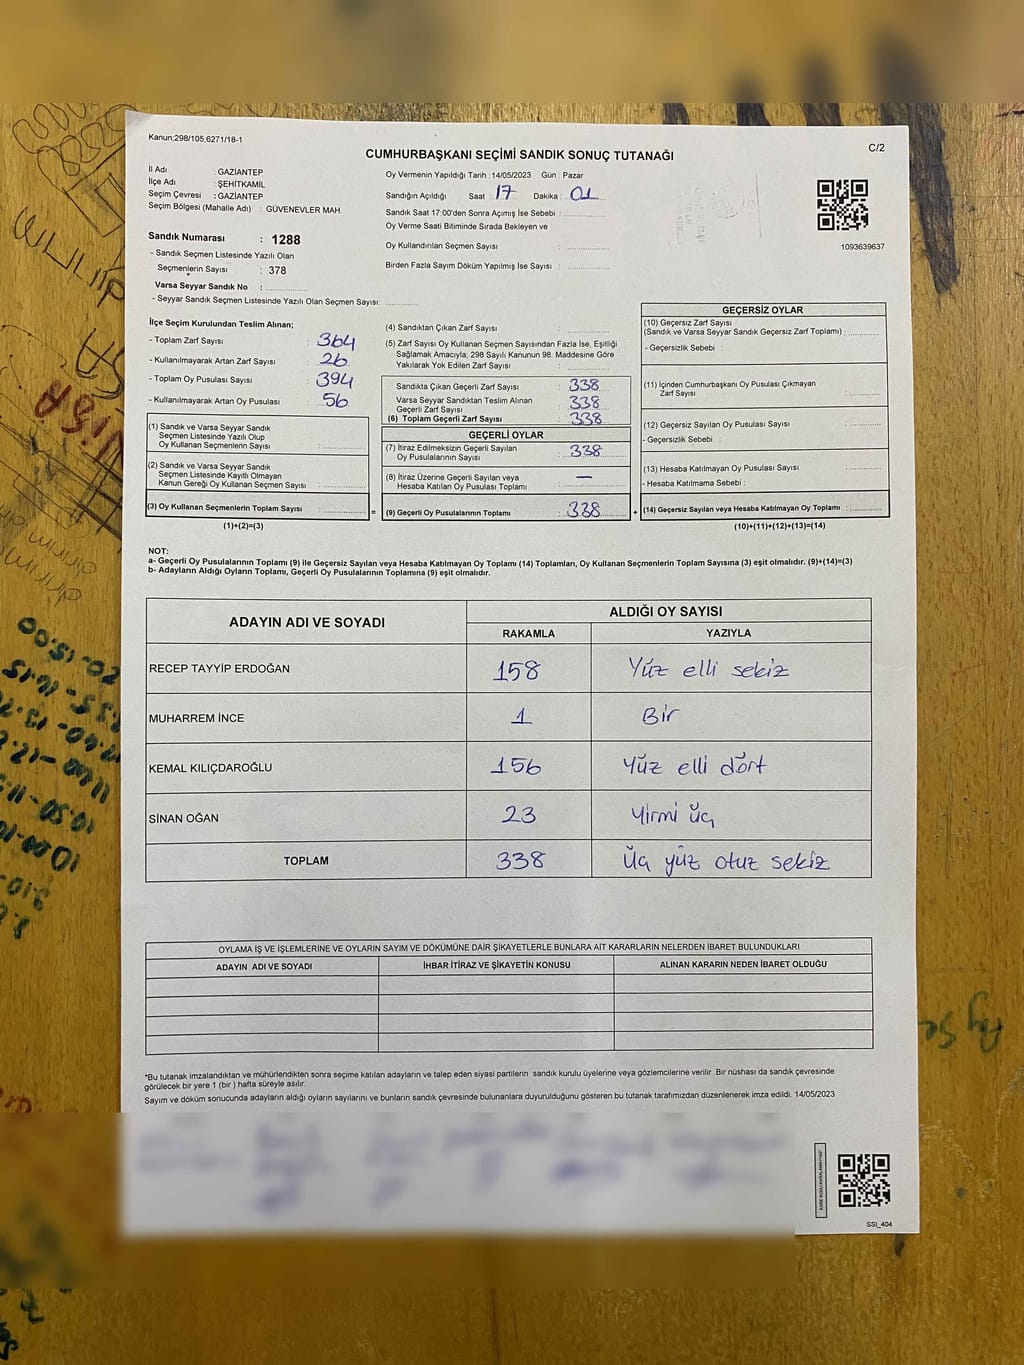 Kanun;298/105,6271/18-1
C/2
CUMHURBAŞKANI SEÇİMİ SANDIK SONUÇ TUTANAĞI
İl Adı : GAZİANTEP
İlçe Adı : ŞEHİTKAMİL
Seçim Çevresi : GAZİANTEP
Seçim Bölgesi (Mahalle Adı) : GÜVENEVLER MAH.
Sandık Numarası : 1288
- Sandık Seçmen Listesinde Yazılı Olan
Seçmenlerin Sayısı : 378
Varsa Seyyar Sandık No :
- Seyyar Sandık Seçmen Listesinde Yazılı Olan Seçmen Sayısı:
Oy Vermenin Yapıldığı Tarih : 14/05/2023 Gün : Pazar
Sandığın Açıldığı Saat 17 Dakika : 01
Sandık Saat 17:00'den Sonra Açımış İse Sebebi :
Oy Verme Saati Bitiminde Sırada Bekleyen ve
Oy Kullandırılan Seçmen Sayısı :
Birden Fazla Sayım Döküm Yapılmış İse Sayısı :
1093639637
İlçe Seçim Kurulundan Teslim Alınan;
- Toplam Zarf Sayısı : 364
- Kullanılmayarak Artan Zarf Sayısı : 26
- Toplam Oy Pusulası Sayısı : 394
- Kullanılmayarak Artan Oy Pusulası : 56
(1) Sandık ve Varsa Seyyar Sandık
Seçmen Listesinde Yazılı Olup
Oy Kullanan Seçmenlerin Sayısı :
(2) Sandık ve Varsa Seyyar Sandık
Seçmen Listesinde Kayıtlı Olmayan
Kanun Gereği Oy Kullanan Seçmen Sayısı :
(3) Oy Kullanan Seçmenlerin Toplam Sayısı :
(1)+(2)=(3)
=
(4) Sandıktan Çıkan Zarf Sayısı :
(5) Zarf Sayısı Oy Kullanan Seçmen Sayısından Fazla İse, Eşitliği
Sağlamak Amacıyla; 298 Sayılı Kanunun 98. Maddesine Göre
Yakılarak Yok Edilen Zarf Sayısı :
Sandıkta Çıkan Geçerli Zarf Sayısı : 338
Varsa Seyyar Sandıktan Teslim Alınan
Geçerli Zarf Sayısı : 338
(6) Toplam Geçerli Zarf Sayısı : 338
GEÇERLİ OYLAR
(7) İtiraz Edilmeksizin Geçerli Sayılan
Oy Pusulalarının Sayısı : 338
(8) İtiraz Üzerine Geçerli Sayılan veya
Hesaba Katılan Oy Pusulası Toplamı : —
(9) Geçerli Oy Pusulalarının Toplamı : 338
+
GEÇERSİZ OYLAR
(10) Geçersiz Zarf Sayısı
(Sandık ve Varsa Seyyar Sandık Geçersiz Zarf Toplamı) :
- Geçersizlik Sebebi :
(11) İçinden Cumhurbaşkanı Oy Pusulası Çıkmayan
Zarf Sayısı :
(12) Geçersiz Sayılan Oy Pusulası Sayısı :
- Geçersizlik Sebebi :
(13) Hesaba Katılmayan Oy Pusulası Sayısı :
- Hesaba Katılmama Sebebi :
(14) Geçersiz Sayılan veya Hesaba Katılmayan Oy Toplamı :
(10)+(11)+(12)+(13)=(14)
NOT:
a- Geçerli Oy Pusulalarının Toplamı (9) ile Geçersiz Sayılan veya Hesaba Katılmayan Oy Toplamı (14) Toplamları, Oy Kullanan Seçmenlerin Toplam Sayısına (3) eşit olmalıdır. (9)+(14)=(3)
b- Adayların Aldığı Oyların Toplamı, Geçerli Oy Pusulalarının Toplamına (9) eşit olmalıdır.
ADAYIN ADI VE SOYADI ALDIĞI OY SAYISI
RAKAMLA YAZIYLA
RECEP TAYYİP ERDOĞAN 158 Yüz elli sekiz
MUHARREM İNCE 1 Bir
KEMAL KILIÇDAROĞLU 156 Yüz elli dört
SİNAN OĞAN 23 Yirmi üç
TOPLAM 338 Üç yüz otuz sekiz
OYLAMA İŞ VE İŞLEMLERİNE VE OYLARIN SAYIM VE DÖKÜMÜNE DAİR ŞİKAYETLERLE BUNLARA AİT KARARLARIN NELERDEN İBARET BULUNDUKLARI
ADAYIN ADI VE SOYADI İHBAR İTİRAZ VE ŞİKAYETİN KONUSU ALINAN KARARIN NEDEN İBARET OLDUĞU
*Bu tutanak imzalandıktan ve mühürlendikten sonra seçime katılan adayların ve talep eden siyasi partilerin sandık kurulu üyelerine veya gözlemcilerine verilir .Bir nüshası da sandık çevresinde
görülecek bir yere 1 (bir ) hafta süreyle asılır.
Sayım ve döküm sonucunda adayların aldığı oyların sayılarını ve bunların sandık çevresinde bulunanlara duyurulduğunu gösteren bu tutanak tarafımızdan düzenlenerek imza edildi. 14/05/2023
SSI_404